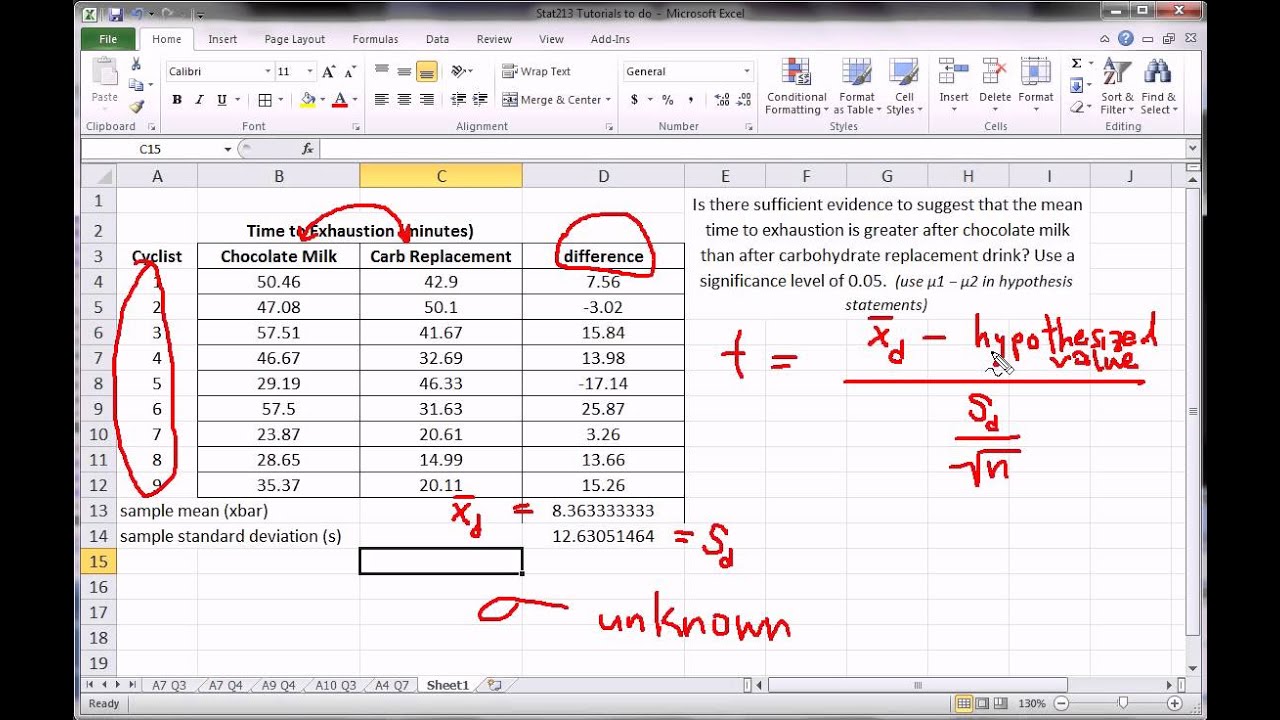 Stat213 Tutorials to do - Microsoft Excel
File Home Insert Page Layout Formulas Data Review View Add-Ins
Paste
Calibri 11
B I U
Wrap Text
Merge & Center
General
$ % ,
Conditional Formatting
Format as Table
Cell Styles
Insert Delete Format
Sort & Filter
Find & Select
Clipboard Font Alignment Number Styles Cells Editing
C15 fx
A B C D E F G H I J
1
2 Time to Exhaustion (minutes)
3 Cyclist Chocolate Milk Carb Replacement difference
4 1 50.46 42.9 7.56
5 2 47.08 50.1 -3.02
6 3 57.51 41.67 15.84
7 4 46.67 32.69 13.98
8 5 29.19 46.33 -17.14
9 6 57.5 31.63 25.87
10 7 23.87 20.61 3.26
11 8 28.65 14.99 13.66
12 9 35.37 20.11 15.26
13 sample mean (xbar) x̄d = 8.363333333
14 sample standard deviation (s) 12.63051464 = Sd
15
16
17
18
19
Is there sufficient evidence to suggest that the mean
time to exhaustion is greater after chocolate milk
than after carbohydrate replacement drink? Use a
significance level of 0.05. (use μ1 – μ2 in hypothesis
statements)
t = x̄d - hypothesized
value
Sd
√n
σ unknown
A7 Q3 A7 Q4 A9 Q4 A10 Q3 A4 Q7 Sheet1
Ready 130%